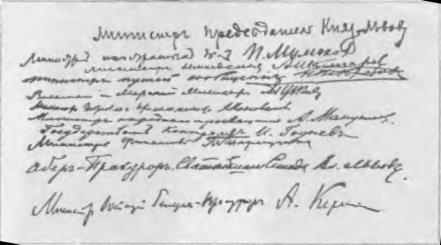 Министръ Председатель Князь Львов
Министръ иностранных дел П. Милюков
министр земледелия А Шингарев
министръ путей сообщения Н Некрасов
Военный и Морской Министр
Министр торговли и промышл. Коновалов
Министръ народного просвещения А. Мануйлов
Государственный Контролер И. Годнев
Министръ Финансов
Обер-Прокурор Святейшаго Синода Вл. Львов
Министр Юстиции Генерал-Прокурор А. Керен